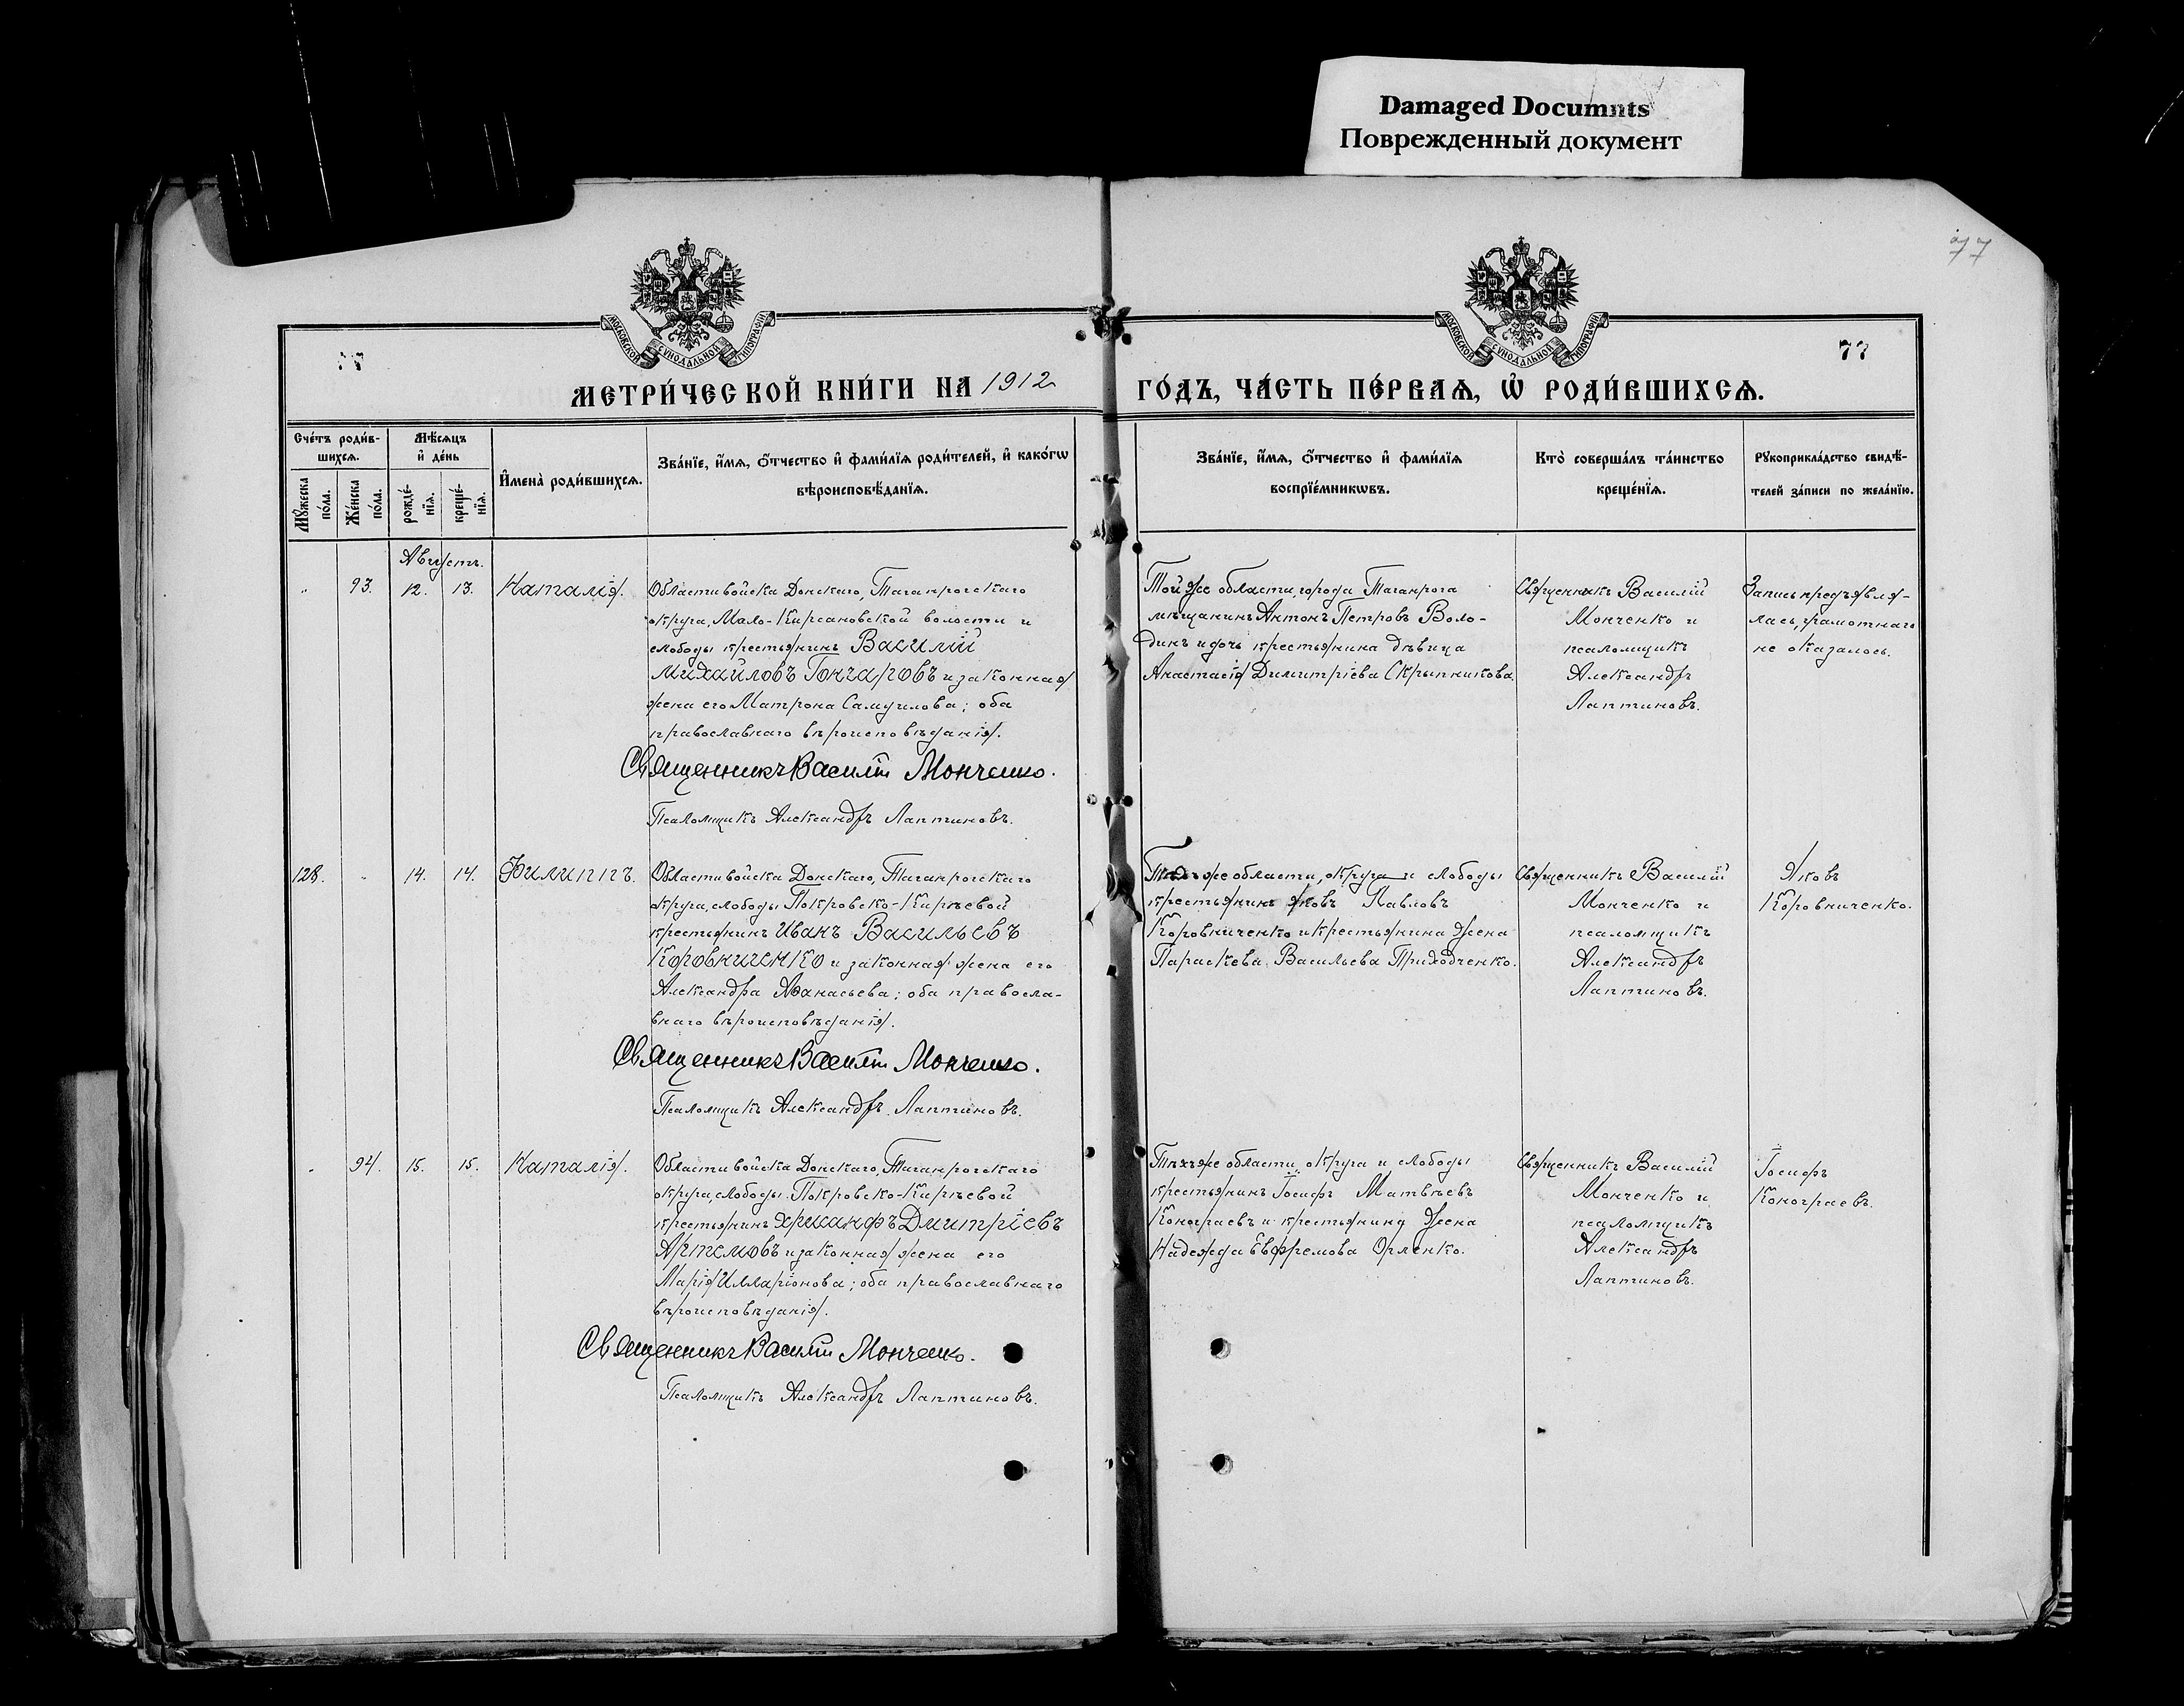 Damaged Documnts
Поврежденный документ
77
МОСКОВСКОЙ СѴНОДАЛЬНОЙ ТИПОГРАФІИ
МОСКОВСКОЙ СѴНОДАЛЬНОЙ ТИПОГРАФІИ
77
77
МЕТРИ́ЧЕСКОЙ КНИ́ГИ НА 1912
ГО́ДЪ, ЧА́СТЬ ПЕ́РВАѦ, Ѡ҆ РОДИ́ВШИХСѦ.
Сче́тъ роди́в-
шихсѧ.
Мѣ́сѧцъ
и҆ де́нь
Мꙋ́жеска
по́ла.
Же́нска
по́ла.
рожде́-
нїѧ.
креще́-
нїѧ.
И҆мена̀ роди́вшихсѧ.
Зва́нїе, и҆́мѧ, ѻ҆́тчество и҆ фами́лїѧ роди́телей, и҆ како́гѡ
вѣроисповѣ́данїѧ.
Зва́нїе, и҆́мѧ, ѻ҆́тчество и҆ фами́лїѧ
воспрїе́мникѡвъ.
Кто̀ соверша́лъ та́инство
креще́нїѧ.
Рꙋкоприкла́дство свидѣ́-
телей за́писи по жела́нїю.
Августъ.
" 93. 12. 13. Наталія.
Области войска Донскаго, Таганрогскаго
округа, Мало-Кирсановской волости и
слободы крестьянинъ Василій
Михайловъ Гончаровъ и законная
жена его Матрона Самуилова; оба
православнаго вѣроисповѣданія.
Священникъ Василій Мончешко.
Псаломщикъ Александръ Лаптиновъ.
Той же области, города Таганрога
мѣщанинъ Антонъ Петровъ Воло-
динъ и дочь крестьянина дѣвица
Анастасія Димитріева Скрыпникова.
Священникъ Василій
Монченко и
псаломщикъ
Александръ
Лаптиновъ.
Запись предъявля-
лась, грамотнаго
не оказалось.
128. " 14. 14. Филиппъ.
Области войска Донскаго, Таганрогскаго
округа, слободы Покровско-Кирѣевой
крестьянинъ Иванъ Васильевъ
Коровниченко и законная жена его
Александра Аѳанасьева; оба правосла-
внаго вѣроисповѣданія.
Священникъ Василій Монченко.
Псаломщикъ Александръ Лаптиновъ.
Тѣхъ же области, округа и слободы
крестьянинъ Яковъ Павловъ
Коровниченко и крестьянина жена
Параскева Васильева Приходченко.
Священникъ Василій
Монченко и
псаломщикъ
Александръ
Лаптиновъ.
Яковъ
Коровниченко.
" 94. 15. 15. Наталія.
Области войска Донскаго, Таганрогскаго
округа, слободы Покровско-Кирѣевой
крестьянинъ Хрисанфъ Дмитріевъ
Артемовъ и законная жена его
Марія Илларіонова; оба православнаго
вѣроисповѣданія.
Священникъ Василій Монченко.
Псаломщикъ Александръ Лаптиновъ.
Тѣхъ же области, округа и слободы
крестьянинъ Іосифъ Матвѣевъ
Конограевъ и крестьянина жена
Надежда Евфремова Орленко.
Священникъ Василій
Монченко и
псаломщикъ
Александръ
Лаптиновъ.
Іосифъ
Конограевъ.